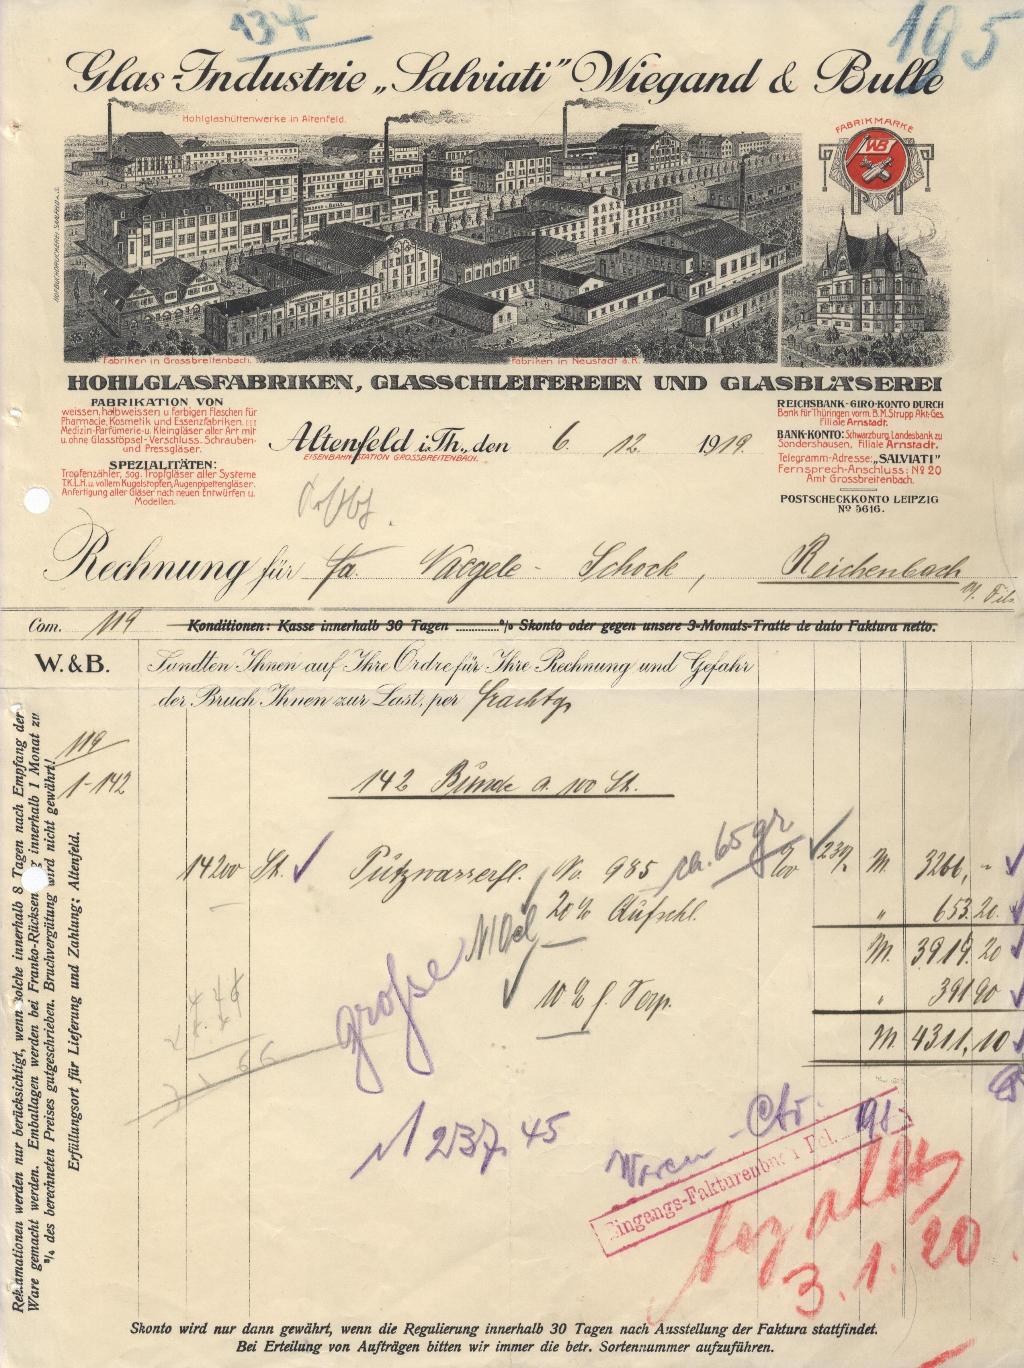 134
195
Glas-Industrie „Salviati" Wiegand & Bulle
Hohlglashüttenwerke in Altenfeld.
FABRIKMARKE
WB
Fabriken in Grossbreitenbach.
Fabriken in Neustadt a. R.
HOHLGLASFABRIKEN, GLASSCHLEIFEREIEN UND GLASBLÄSEREI
FABRIKATION VON
weissen, halbweissen u. farbigen Flaschen für
Pharmacie, Kosmetik und Essenzfabriken.
Medizin-Parfümerie- u. Kleingläser aller Art mit
u. ohne Glasstöpsel-Verschluss. Schrauben-
und Pressgläser.
SPEZIALITÄTEN:
Tropfenzähler, sog. Tropfgläser aller Systeme
T.K.L.H. u. vollem Kugelstopfen, Augenpipettengläser.
Anfertigung aller Gläser nach neuen Entwürfen u.
Modellen.
Altenfeld i. Th., den 6. 12. 1919.
EISENBAHN-STATION GROSSBREITENBACH.
REICHSBANK-GIRO-KONTO DURCH
Bank für Thüringen vorm. B. M. Strupp Akt-Ges.
Filiale Arnstadt.
BANK-KONTO: Schwarzburg. Landesbank zu
Sondershausen, Filiale Arnstadt.
Telegramm-Adresse: „SALVIATI"
Fernsprech-Anschluss: No 20
Amt Grossbreitenbach.
POSTSCHECKKONTO LEIPZIG
No 5616.
Rechnung für Fa. Naegele - Schock, Reichenbach
a/. Fils
Com. 119 Konditionen: Kasse innerhalb 30 Tagen ............% Skonto oder gegen unsere 3-Monats-Tratte de dato Faktura netto.
W. & B. Sandten Ihnen auf Ihre Ordre für Ihre Rechnung und Gefahr
der Bruch Ihnen zur Last, per Frachtg.
119
1-142 142 Bunde a. 100 St.
14200 St. Putzwasserfl. No. 985 ca. 65 gr %00 230/. M. 3266,-
20% Aufschl. " 653.20.
M. 3919.20
10% f. Verp. " 391 90
M. 4311,10
große
1237,45
Waren Cto. 196
Eingangs-Fakturenbuch Fol.
bezahlt
3.1.20
Reklamationen werden nur berücksichtigt, wenn solche innerhalb 8 Tagen nach Empfang der
Ware gemacht werden. Emballagen werden bei Franko-Rücksendung innerhalb 1 Monat zu
³/₄ des berechneten Preises gutgeschrieben. Bruchvergütung wird nicht gewährt!
Erfüllungsort für Lieferung und Zahlung: Altenfeld.
Skonto wird nur dann gewährt, wenn die Regulierung innerhalb 30 Tagen nach Ausstellung der Faktura stattfindet.
Bei Erteilung von Aufträgen bitten wir immer die betr. Sortennummer aufzuführen.